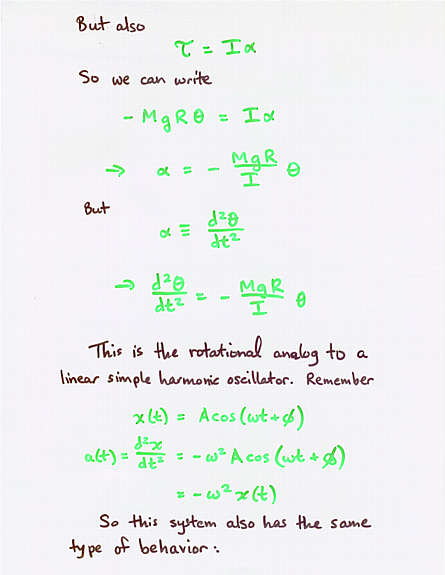 But also
τ = Iα
So we can write
- MgRθ = Iα
→ α = - MgR/I θ
But
α ≡ d²θ/dt²
→ d²θ/dt² = - MgR/I θ
This is the rotational analog to a
linear simple harmonic oscillator. Remember
x(t) = A cos(ωt+ϕ)
a(t) = d²x/dt² = -ω² A cos(ωt + ϕ)
= -ω² x(t)
So this system also has the same
type of behavior: